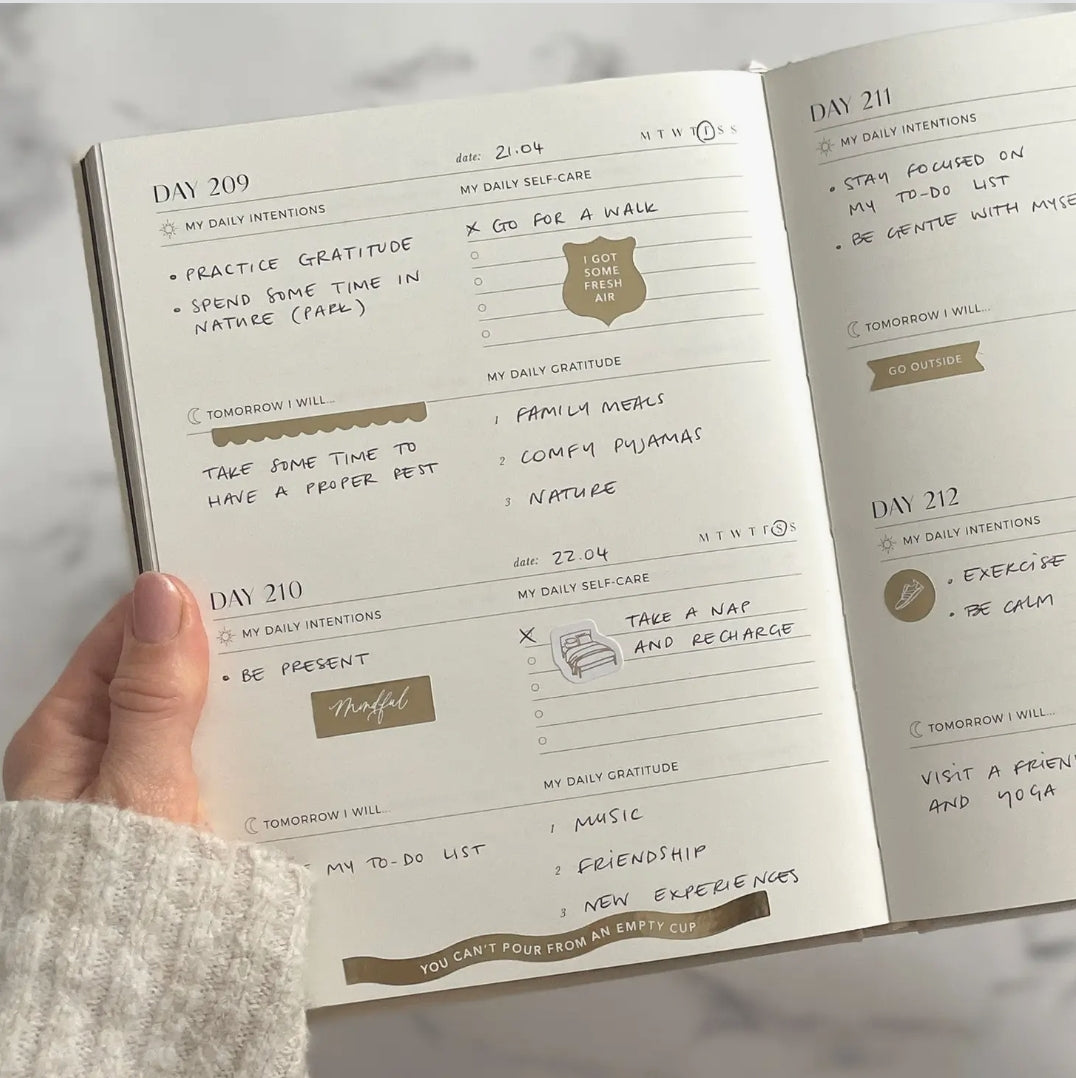 DAY 209
date: 21.04
M T W T F S S
MY DAILY INTENTIONS
• PRACTICE GRATITUDE
• SPEND SOME TIME IN
NATURE (PARK)
MY DAILY SELF-CARE
X GO FOR A WALK
I GOT
SOME
FRESH
AIR
TOMORROW I WILL...
TAKE SOME TIME TO
HAVE A PROPER REST
MY DAILY GRATITUDE
1 FAMILY MEALS
2 COMFY PYJAMAS
3 NATURE
DAY 210
date: 22.04
M T W T F S S
MY DAILY INTENTIONS
• BE PRESENT
Mindful
MY DAILY SELF-CARE
X TAKE A NAP
AND RECHARGE
TOMORROW I WILL...
MY TO-DO LIST
MY DAILY GRATITUDE
1 MUSIC
2 FRIENDSHIP
3 NEW EXPERIENCES
YOU CAN'T POUR FROM AN EMPTY CUP
DAY 211
MY DAILY INTENTIONS
• STAY FOCUSED ON
MY TO-DO LIST
• BE GENTLE WITH MYSE
TOMORROW I WILL...
GO OUTSIDE
DAY 212
MY DAILY INTENTIONS
• EXERCISE
• BE CALM
TOMORROW I WILL...
VISIT A FRIEN
AND YOGA